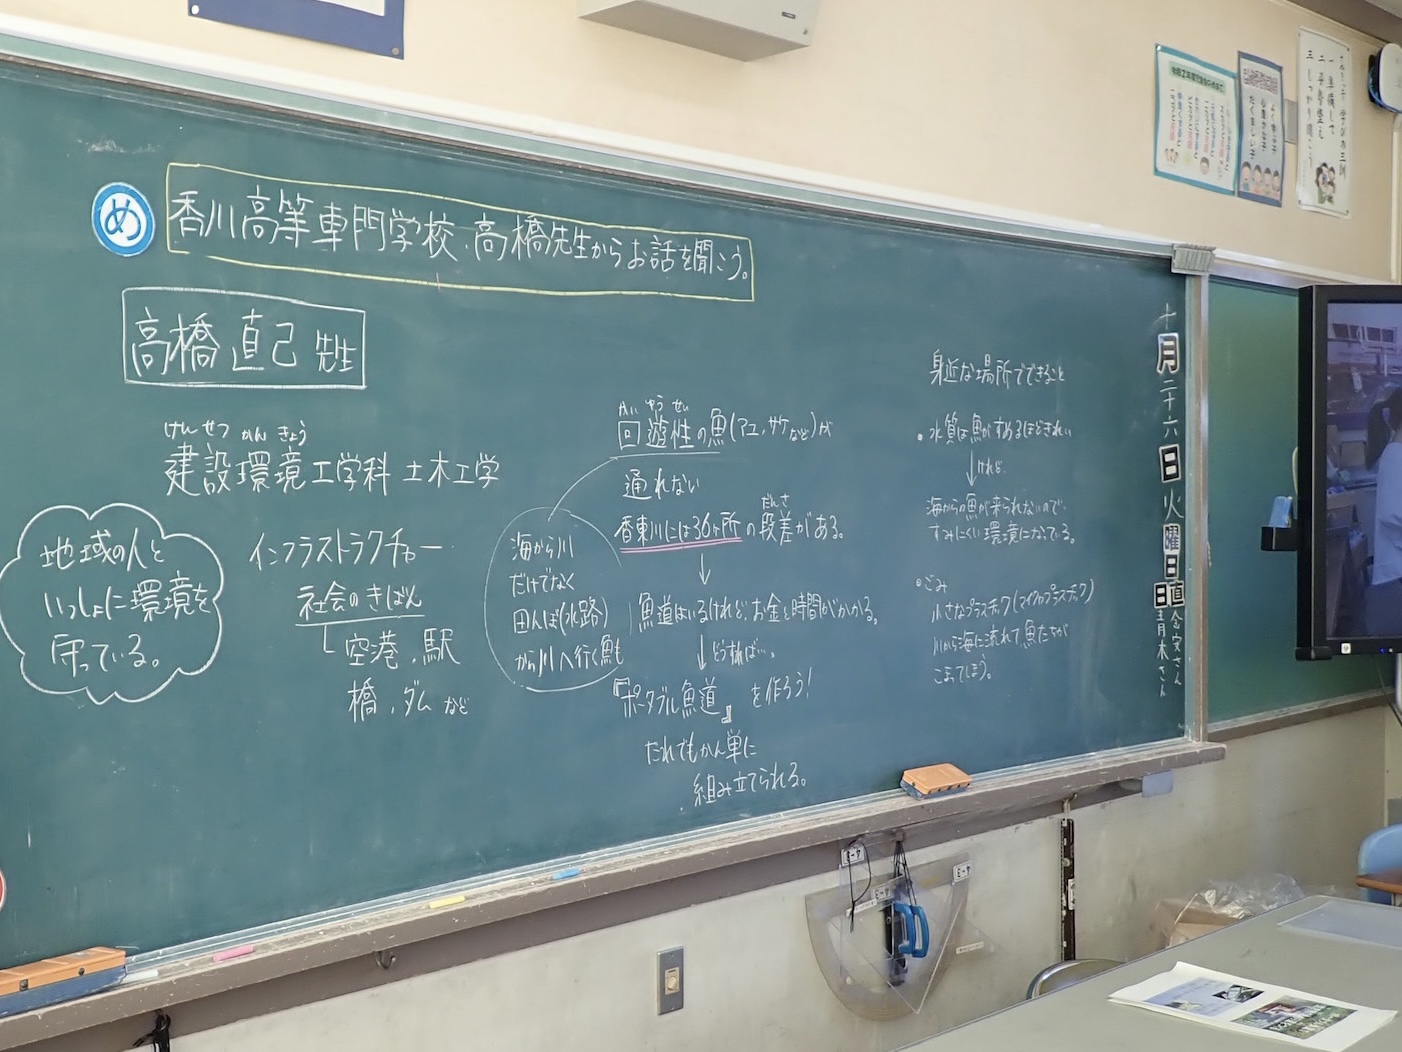 め
香川高等専門学校・高橋先生からお話を聞こう。
高橋 直己 先生
けんせつ かん きょう
建設環境工学科 土木工学
地域の人と
いっしょに環境を
守っている。
インフラストラクチャー
社会のきばん
空港、駅
橋、ダム など
海から川
だけでなく
田んぼ(水路)
から川へ行く魚も
かい ゆう せい
回遊性の魚(アユ、サケなど)が
通れない
だんさ
香東川には36ヶ所の段差がある。
↓
魚道はいるけれど、お金と時間がかかる。
↓どうすれば…。
『ポータブル魚道』を作ろう!
だれでもかん単に
組み立てられる。
身近な場所でできること
・水質は魚がすめるほどきれい
↓けれど
海からの魚が来られないので、
すみにくい環境になっている。
・ごみ
小さなプラスチック(マイクロプラスチック)
川から海に流れて、魚たちが
こまってしまう。
十月二十六日火曜日
日直
青木さん
一 準備して